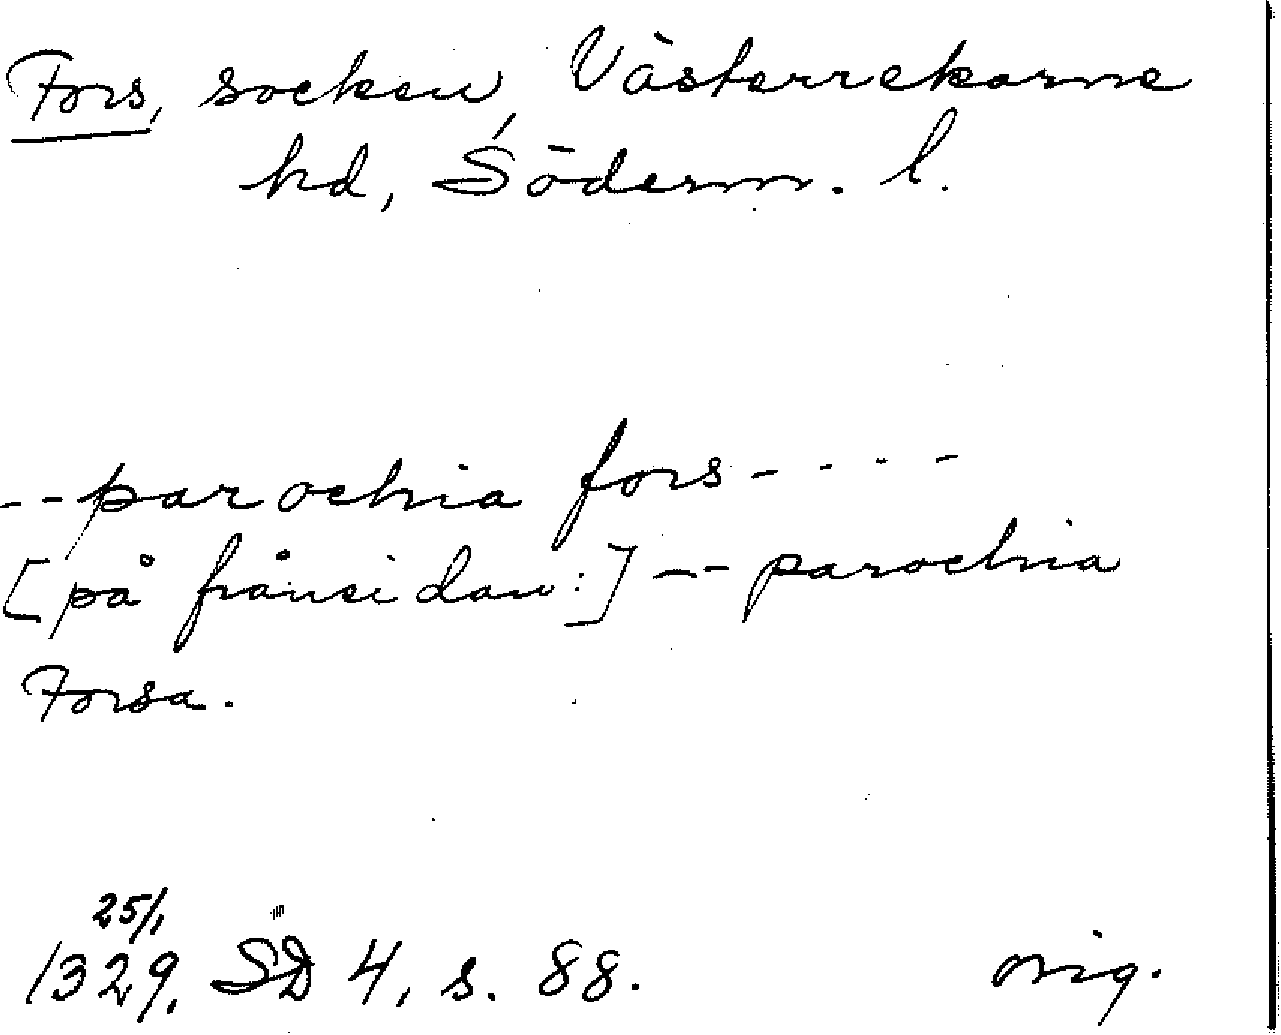 Fors, socken, Västerrekarne
hd, Söderm. l.
-- parochia fors - - - -
[på frånsidan:] -- parochia
Forsa.
25/1
1329. SD 4, s. 88. orig.